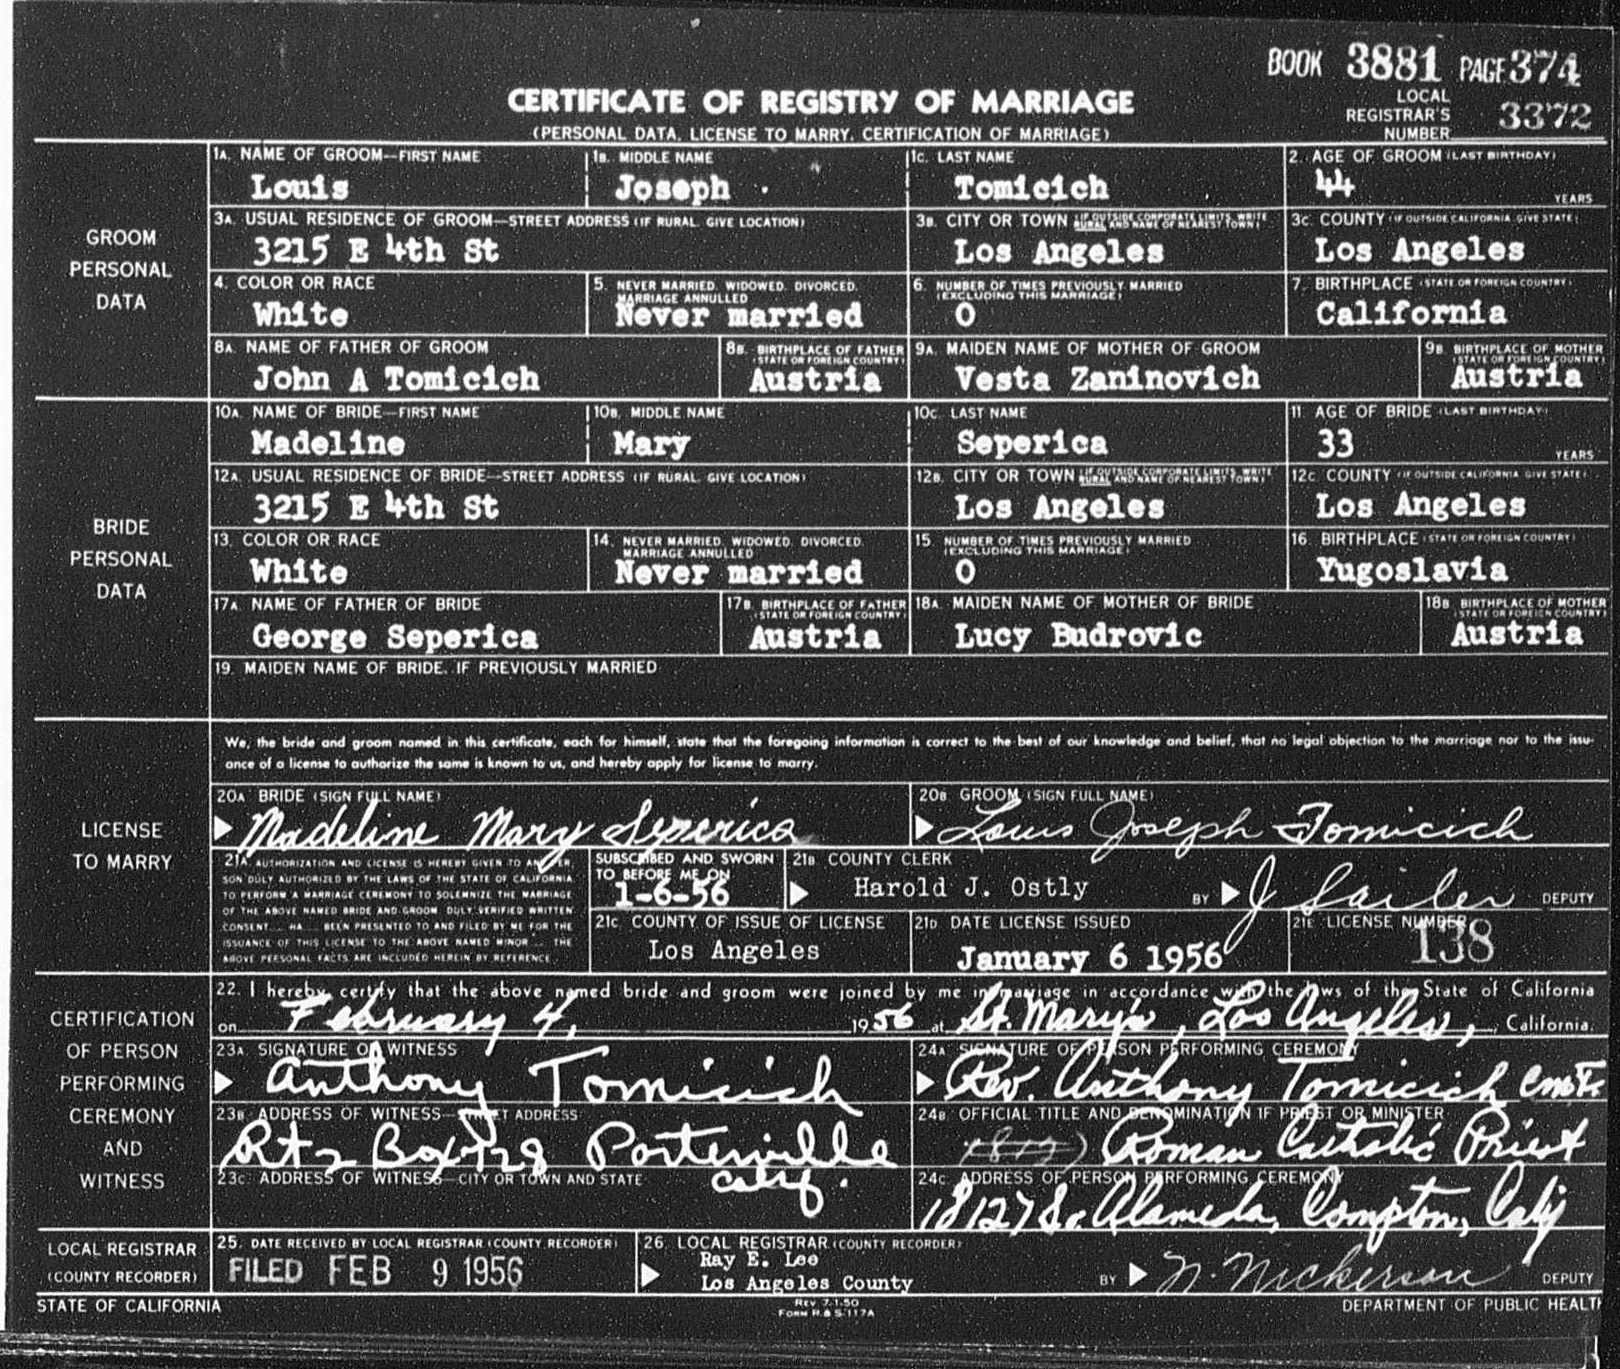 BOOK 3881 PAGE 374
CERTIFICATE OF REGISTRY OF MARRIAGE
(PERSONAL DATA, LICENSE TO MARRY, CERTIFICATION OF MARRIAGE)
LOCAL REGISTRAR'S NUMBER 3372
GROOM PERSONAL DATA
1A. NAME OF GROOM—FIRST NAME 1B. MIDDLE NAME 1C. LAST NAME 2. AGE OF GROOM (LAST BIRTHDAY)
Louis Joseph Tomicich 44 YEARS
3A. USUAL RESIDENCE OF GROOM—STREET ADDRESS (IF RURAL, GIVE LOCATION) 3B. CITY OR TOWN (IF OUTSIDE CORPORATE LIMITS, WRITE RURAL AND NAME OF NEAREST TOWN) 3C. COUNTY (IF OUTSIDE CALIFORNIA, GIVE STATE)
3215 E 4th St Los Angeles Los Angeles
4. COLOR OR RACE 5. NEVER MARRIED, WIDOWED, DIVORCED, MARRIAGE ANNULLED 6. NUMBER OF TIMES PREVIOUSLY MARRIED (EXCLUDING THIS MARRIAGE) 7. BIRTHPLACE (STATE OR FOREIGN COUNTRY)
White Never married 0 California
8A. NAME OF FATHER OF GROOM 8B. BIRTHPLACE OF FATHER (STATE OR FOREIGN COUNTRY) 9A. MAIDEN NAME OF MOTHER OF GROOM 9B. BIRTHPLACE OF MOTHER (STATE OR FOREIGN COUNTRY)
John A Tomicich Austria Vesta Zaninovich Austria
BRIDE PERSONAL DATA
10A. NAME OF BRIDE—FIRST NAME 10B. MIDDLE NAME 10C. LAST NAME 11. AGE OF BRIDE (LAST BIRTHDAY)
Madeline Mary Seperica 33 YEARS
12A. USUAL RESIDENCE OF BRIDE—STREET ADDRESS (IF RURAL, GIVE LOCATION) 12B. CITY OR TOWN (IF OUTSIDE CORPORATE LIMITS, WRITE RURAL AND NAME OF NEAREST TOWN) 12C. COUNTY (IF OUTSIDE CALIFORNIA, GIVE STATE)
3215 E 4th St Los Angeles Los Angeles
13. COLOR OR RACE 14. NEVER MARRIED, WIDOWED, DIVORCED, MARRIAGE ANNULLED 15. NUMBER OF TIMES PREVIOUSLY MARRIED (EXCLUDING THIS MARRIAGE) 16. BIRTHPLACE (STATE OR FOREIGN COUNTRY)
White Never married 0 Yugoslavia
17A. NAME OF FATHER OF BRIDE 17B. BIRTHPLACE OF FATHER (STATE OR FOREIGN COUNTRY) 18A. MAIDEN NAME OF MOTHER OF BRIDE 18B. BIRTHPLACE OF MOTHER (STATE OR FOREIGN COUNTRY)
George Seperica Austria Lucy Budrovic Austria
19. MAIDEN NAME OF BRIDE, IF PREVIOUSLY MARRIED
LICENSE TO MARRY
We, the bride and groom named in this certificate, each for himself, state that the foregoing information is correct to the best of our knowledge and belief, that no legal objection to the marriage nor to the issu-
ance of a license to authorize the same is known to us, and hereby apply for license to marry.
20A BRIDE (SIGN FULL NAME) 20B GROOM (SIGN FULL NAME)
Madeline Mary Seperica Louis Joseph Tomicich
21A. AUTHORIZATION AND LICENSE IS HEREBY GIVEN TO ANY PER-
SON DULY AUTHORIZED BY THE LAWS OF THE STATE OF CALIFORNIA
TO PERFORM A MARRIAGE CEREMONY TO SOLEMNIZE THE MARRIAGE
OF THE ABOVE NAMED BRIDE AND GROOM. DULY VERIFIED WRITTEN
CONSENT.... HA.... BEEN PRESENTED TO AND FILED BY ME FOR THE
ISSUANCE OF THIS LICENSE TO THE ABOVE NAMED MINOR.... THE
ABOVE PERSONAL FACTS ARE INCLUDED HEREIN BY REFERENCE.
SUBSCRIBED AND SWORN TO BEFORE ME ON
1-6-56
21B COUNTY CLERK
Harold J. Ostly BY J Sailer DEPUTY
21C COUNTY OF ISSUE OF LICENSE 21D DATE LICENSE ISSUED 21E LICENSE NUMBER
Los Angeles January 6 1956 138
CERTIFICATION OF PERSON PERFORMING CEREMONY AND WITNESS
22. I hereby certify that the above named bride and groom were joined by me in marriage in accordance with the laws of the State of California
on February 4, 1956 at St. Mary's, Los Angeles, California.
23A SIGNATURE OF WITNESS 24A SIGNATURE OF PERSON PERFORMING CEREMONY
Anthony Tomicich Rev. Anthony Tomicich CMF.
23B ADDRESS OF WITNESS—STREET ADDRESS 24B OFFICIAL TITLE AND DENOMINATION IF PRIEST OR MINISTER
Rt 2 Box 728 Porterville Roman Catholic Priest
23C ADDRESS OF WITNESS—CITY OR TOWN AND STATE 24C ADDRESS OF PERSON PERFORMING CEREMONY
Calif. 18127 So. Alameda, Compton, Calif
LOCAL REGISTRAR (COUNTY RECORDER)
25. DATE RECEIVED BY LOCAL REGISTRAR (COUNTY RECORDER) 26. LOCAL REGISTRAR (COUNTY RECORDER)
FILED FEB 9 1956 Ray E. Lee
Los Angeles County BY N. Nickerson DEPUTY
STATE OF CALIFORNIA REV 7-1-50 DEPARTMENT OF PUBLIC HEALTH
FORM R & S-117A